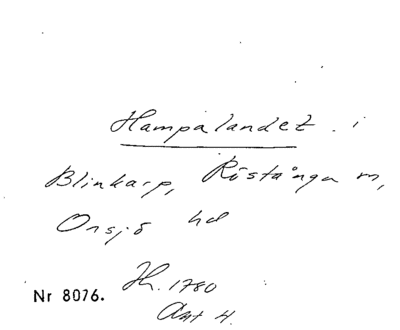 Hampalandet i
Blinkarp, Röstånga m,
Onsjö hd
Jh. 1780
Akt 4.
Nr 8076.